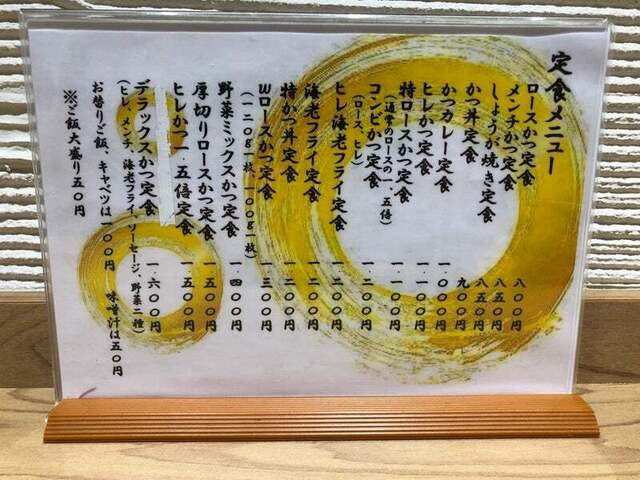 定食メニュー
ロースかつ定食 八〇〇円
メンチかつ定食 八五〇円
しょうが焼き定食 八五〇円
かつ丼定食 九〇〇円
かつカレー定食 一.〇〇〇円
ヒレかつ定食 一.一〇〇円
特ロースかつ定食 一.一〇〇円
(通常のロースの一.五倍)
コンビかつ定食 一.二〇〇円
(ロース、ヒレ)
ヒレ海老フライ定食 一.二〇〇円
海老フライ定食 一.二〇〇円
特かつ丼定食 一.二〇〇円
Wロースかつ定食 一.三〇〇円
(一二〇g一枚、一〇〇g一枚)
野菜ミックスかつ定食 一.四〇〇円
厚切りロースかつ定食 一.五〇〇円
ヒレかつ一.五倍定食 一.五〇〇円
デラックスかつ定食 一.六〇〇円
(ヒレ、メンチ、海老フライ、ソーセージ、野菜二種)
お替りご飯、キャベツは一〇〇円 味噌汁は五〇円
※ご飯大盛り五〇円